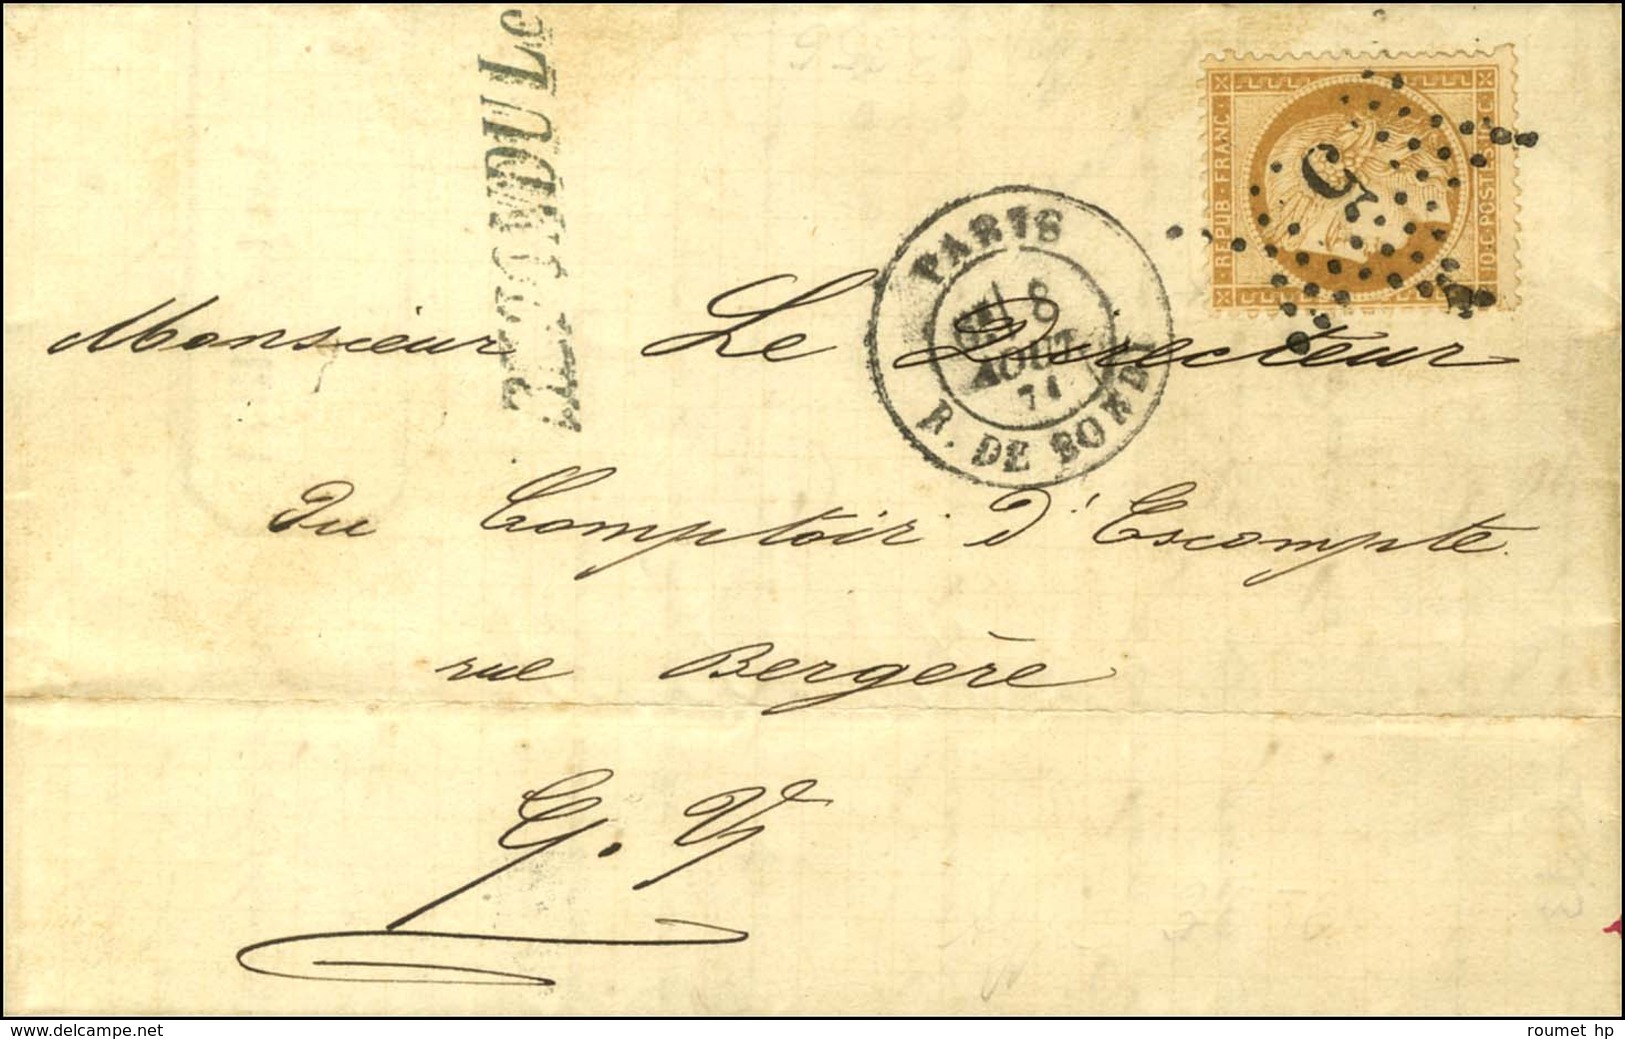 REPUB·FRANC.
10·C·POSTES·10·C
5
PARIS
8
AOUT
71
R. DE BONDY
Monsieur Le Directeur
Du Comptoir d'Escompte
rue Bergère
E.V.
www.delcampe.net
roumet_hp